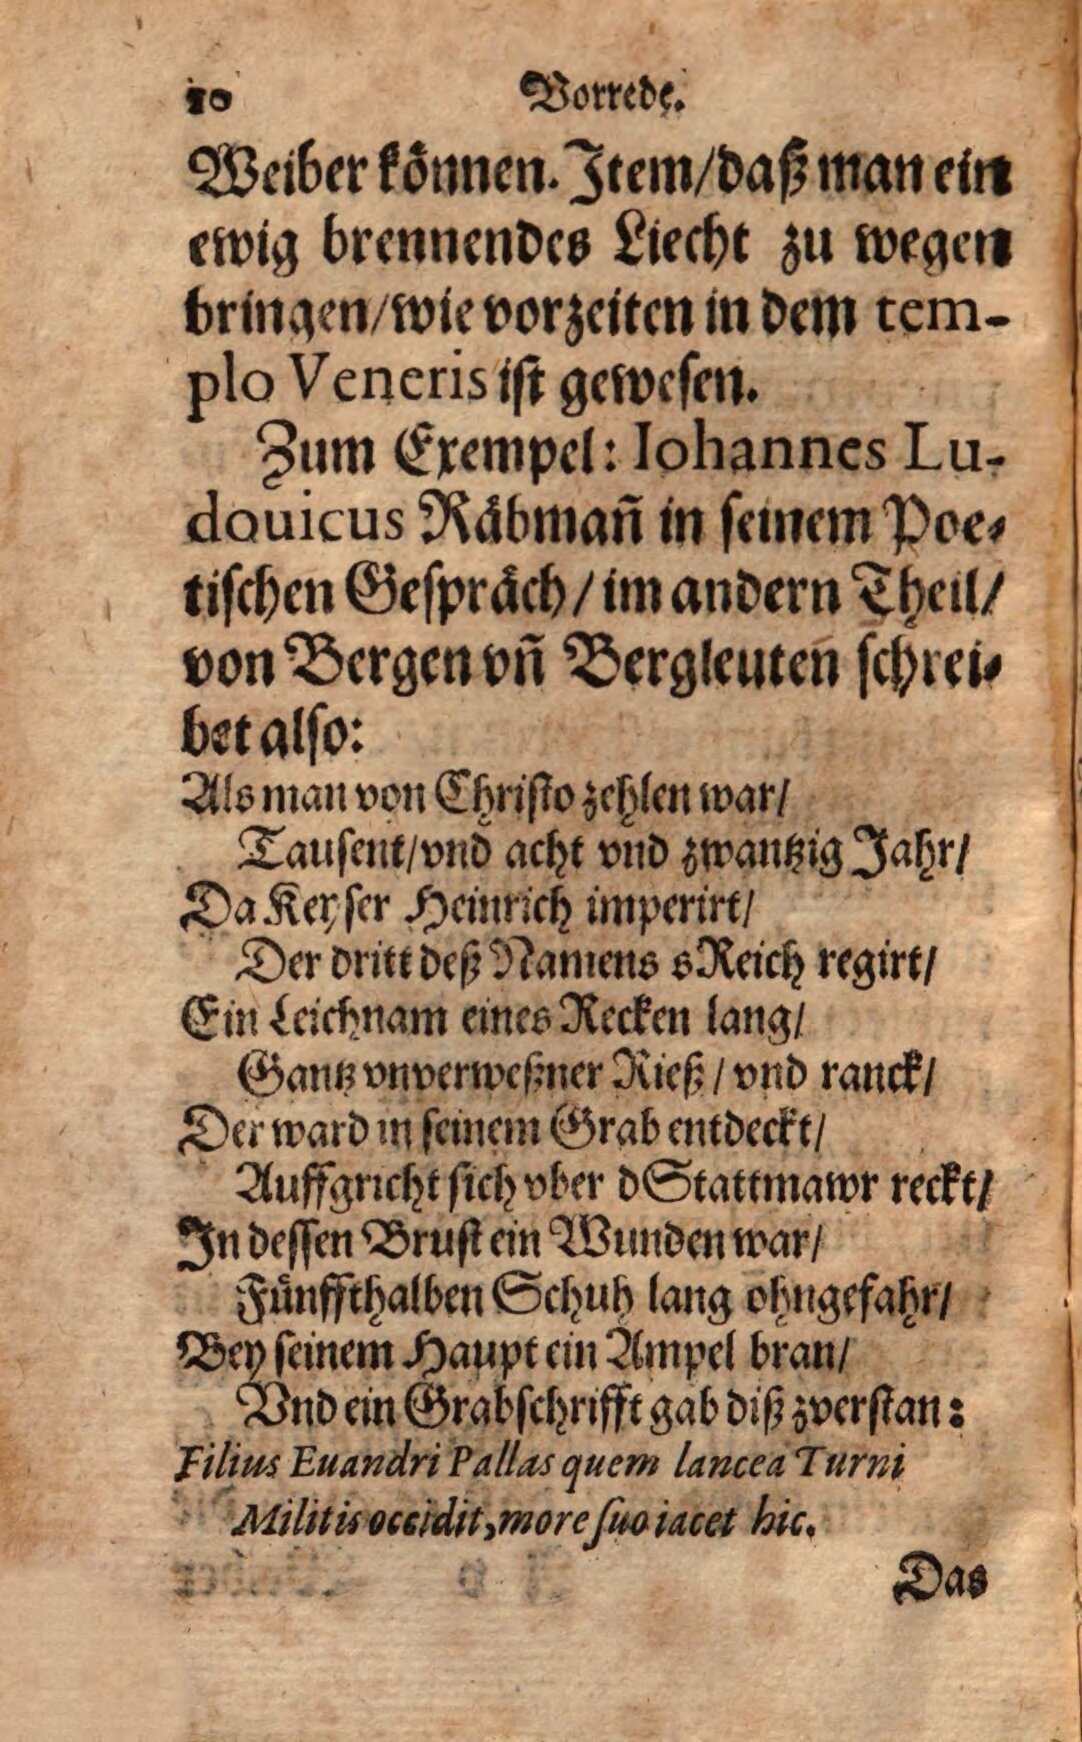 10 Vorrede.
Weiber können. Item/daß man ein
ewig brennendes Liecht zu wegen
bringen/wie vorzeiten in dem tem-
plo Veneris ist gewesen.
Zum Exempel: Iohannes Lu-
douicus Räbmañ in seinem Poe-
tischen Gespräch/im andern Theil/
von Bergen vñ Bergleuten schrei-
bet also:
Als man von Christo zehlen war/
Tausent/vnd acht vnd zwantzig Jahr/
Da Keyser Heinrich imperirt/
Der dritt deß Namens sReich regirt/
Ein Leichnam eines Recken lang/
Gantz vnverweßner Rieß/vnd ranck/
Der ward in seinem Grab entdeckt/
Auffgricht sich vber dStattmawr reckt/
In dessen Brust ein Wunden war/
Fünffthalben Schuh lang ohngefahr/
Bey seinem Haupt ein Ampel bran/
Vnd ein Grabschrifft gab diß zverstan:
Filius Euandri Pallas quem lancea Turni
Militis occidit, more suo iacet hic.
Das